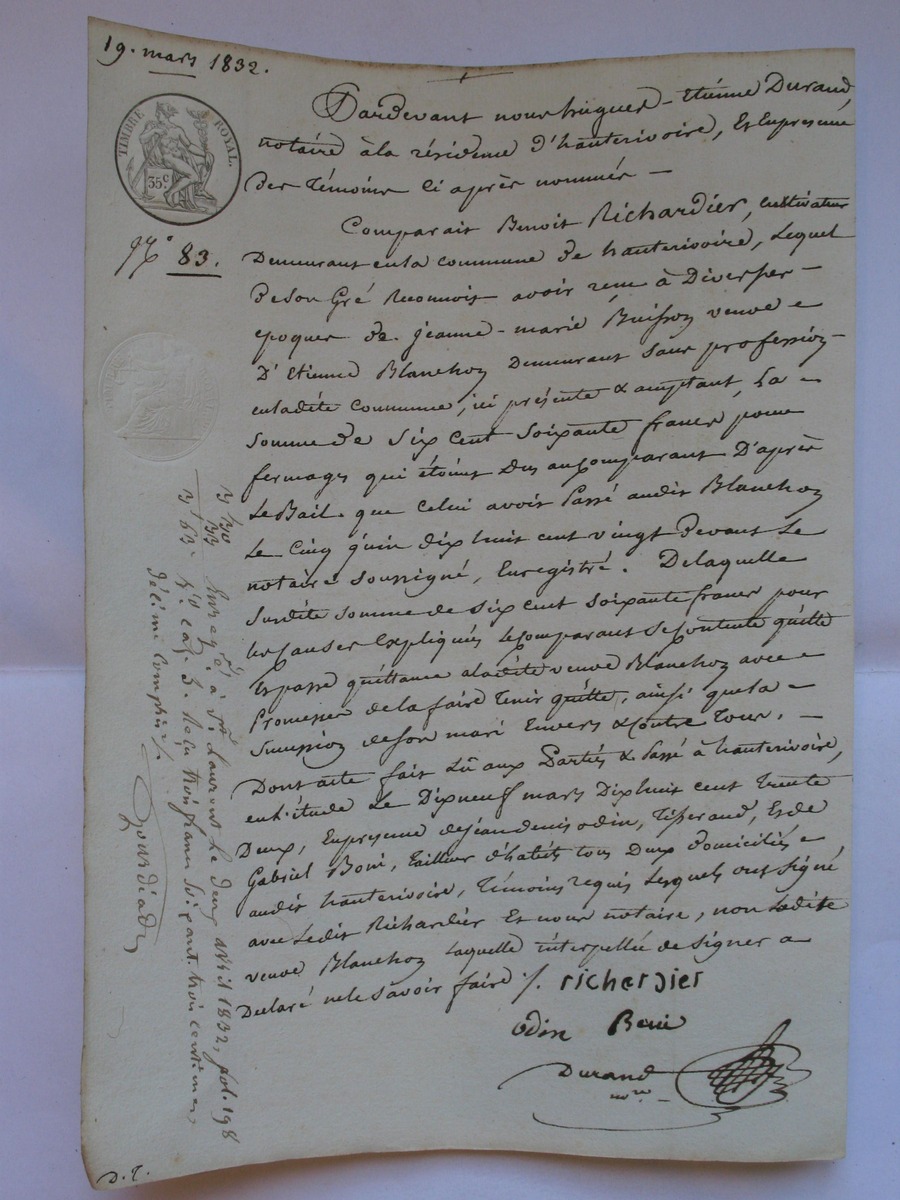 19. mars 1832.
TIMBRE ROYAL.
35c
No 83.
Pardevant nous hugues-Etiénne Durand,
notaire à la résidence d'hauterivoire, Et En presence
des Témoins Ci après nommés —
Comparait Benoit Richardier, cultivateur
Demeurant en la commune de hauterivoire, Lequel
de son Gré Reconnois avoir recu à Diverses —
epoques de jeanne-marie Buisson veuve
D'Etienne Blanchon Demeurant sans profession
en ladite commune, ici présente & acceptant, La
somme de Six Cent Soixante francs pour
fermages qui étoint Dus au Comparant D'après
Le Bail que celui avoir Passé audit Blanchon
Le Cinq juin dix huit cent vingt Devant Le
notaire soussigné, Enregistré. De laquelle
surdite somme de Six Cent Soixante francs pour
Les causes Expliquées Le Comparant Se Contente quitte
Et passe quittance à ladite veuve Blanchon avec
Promesse de la faire Tenir quitte, ainsi que la
Sucession de son mari Envers & Contre Tous. —
Dont acte fait Lû aux Parties & Passé à hauterivoire,
en l'étude Le Dix neuf mars Dix huit cent Trente
Deux, En presence de jean denis odin, Tisserand, Et de
Gabriel Boni, Tailleur d'habits tous Deux Domiciliés
audit hauterivoire, Témoins requis Lesquels ont signé
avec Ledit Richardier Et nous notaire, non Ladite
veuve Blanchon Laquelle interpellée de signer a
Declaré ne le Savoir faire ./.
richerdier
odin Boni
Durand
nore
3 30
33
3 63
Enregé à St Laurent Le deux avril 1832, fol. 198
Vo cas. 3. Reçu trois francs Soixante trois centimes
décime Compris ./.
D.T.